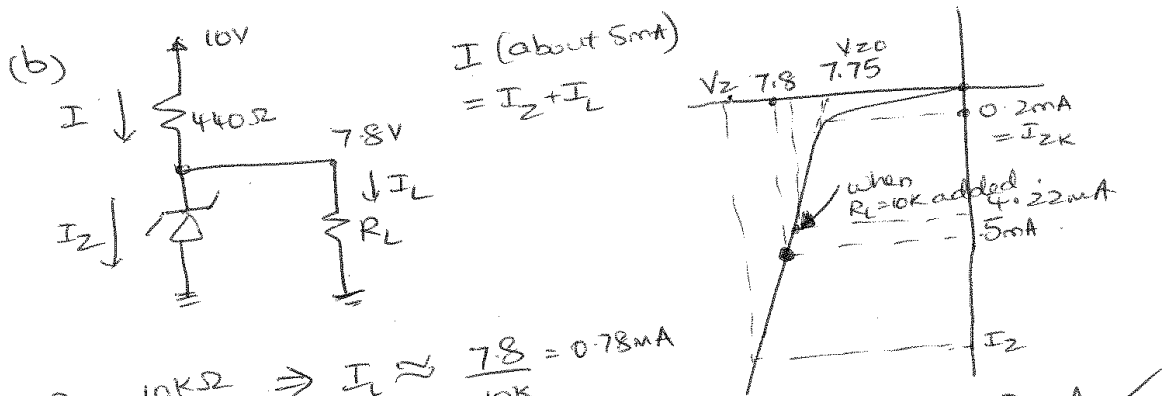 (b)
10V
I
440Ω
7.8V
I_Z
I_L
R_L
I (about 5mA)
= I_Z + I_L
V_Z 7.8 V_Z0
7.75
0.2mA
= I_ZK
when
R_L=10K added
4.22mA
5mA
I_Z
10KΩ ⇒ I_L ≈ 7.8 = 0.78mA
10K